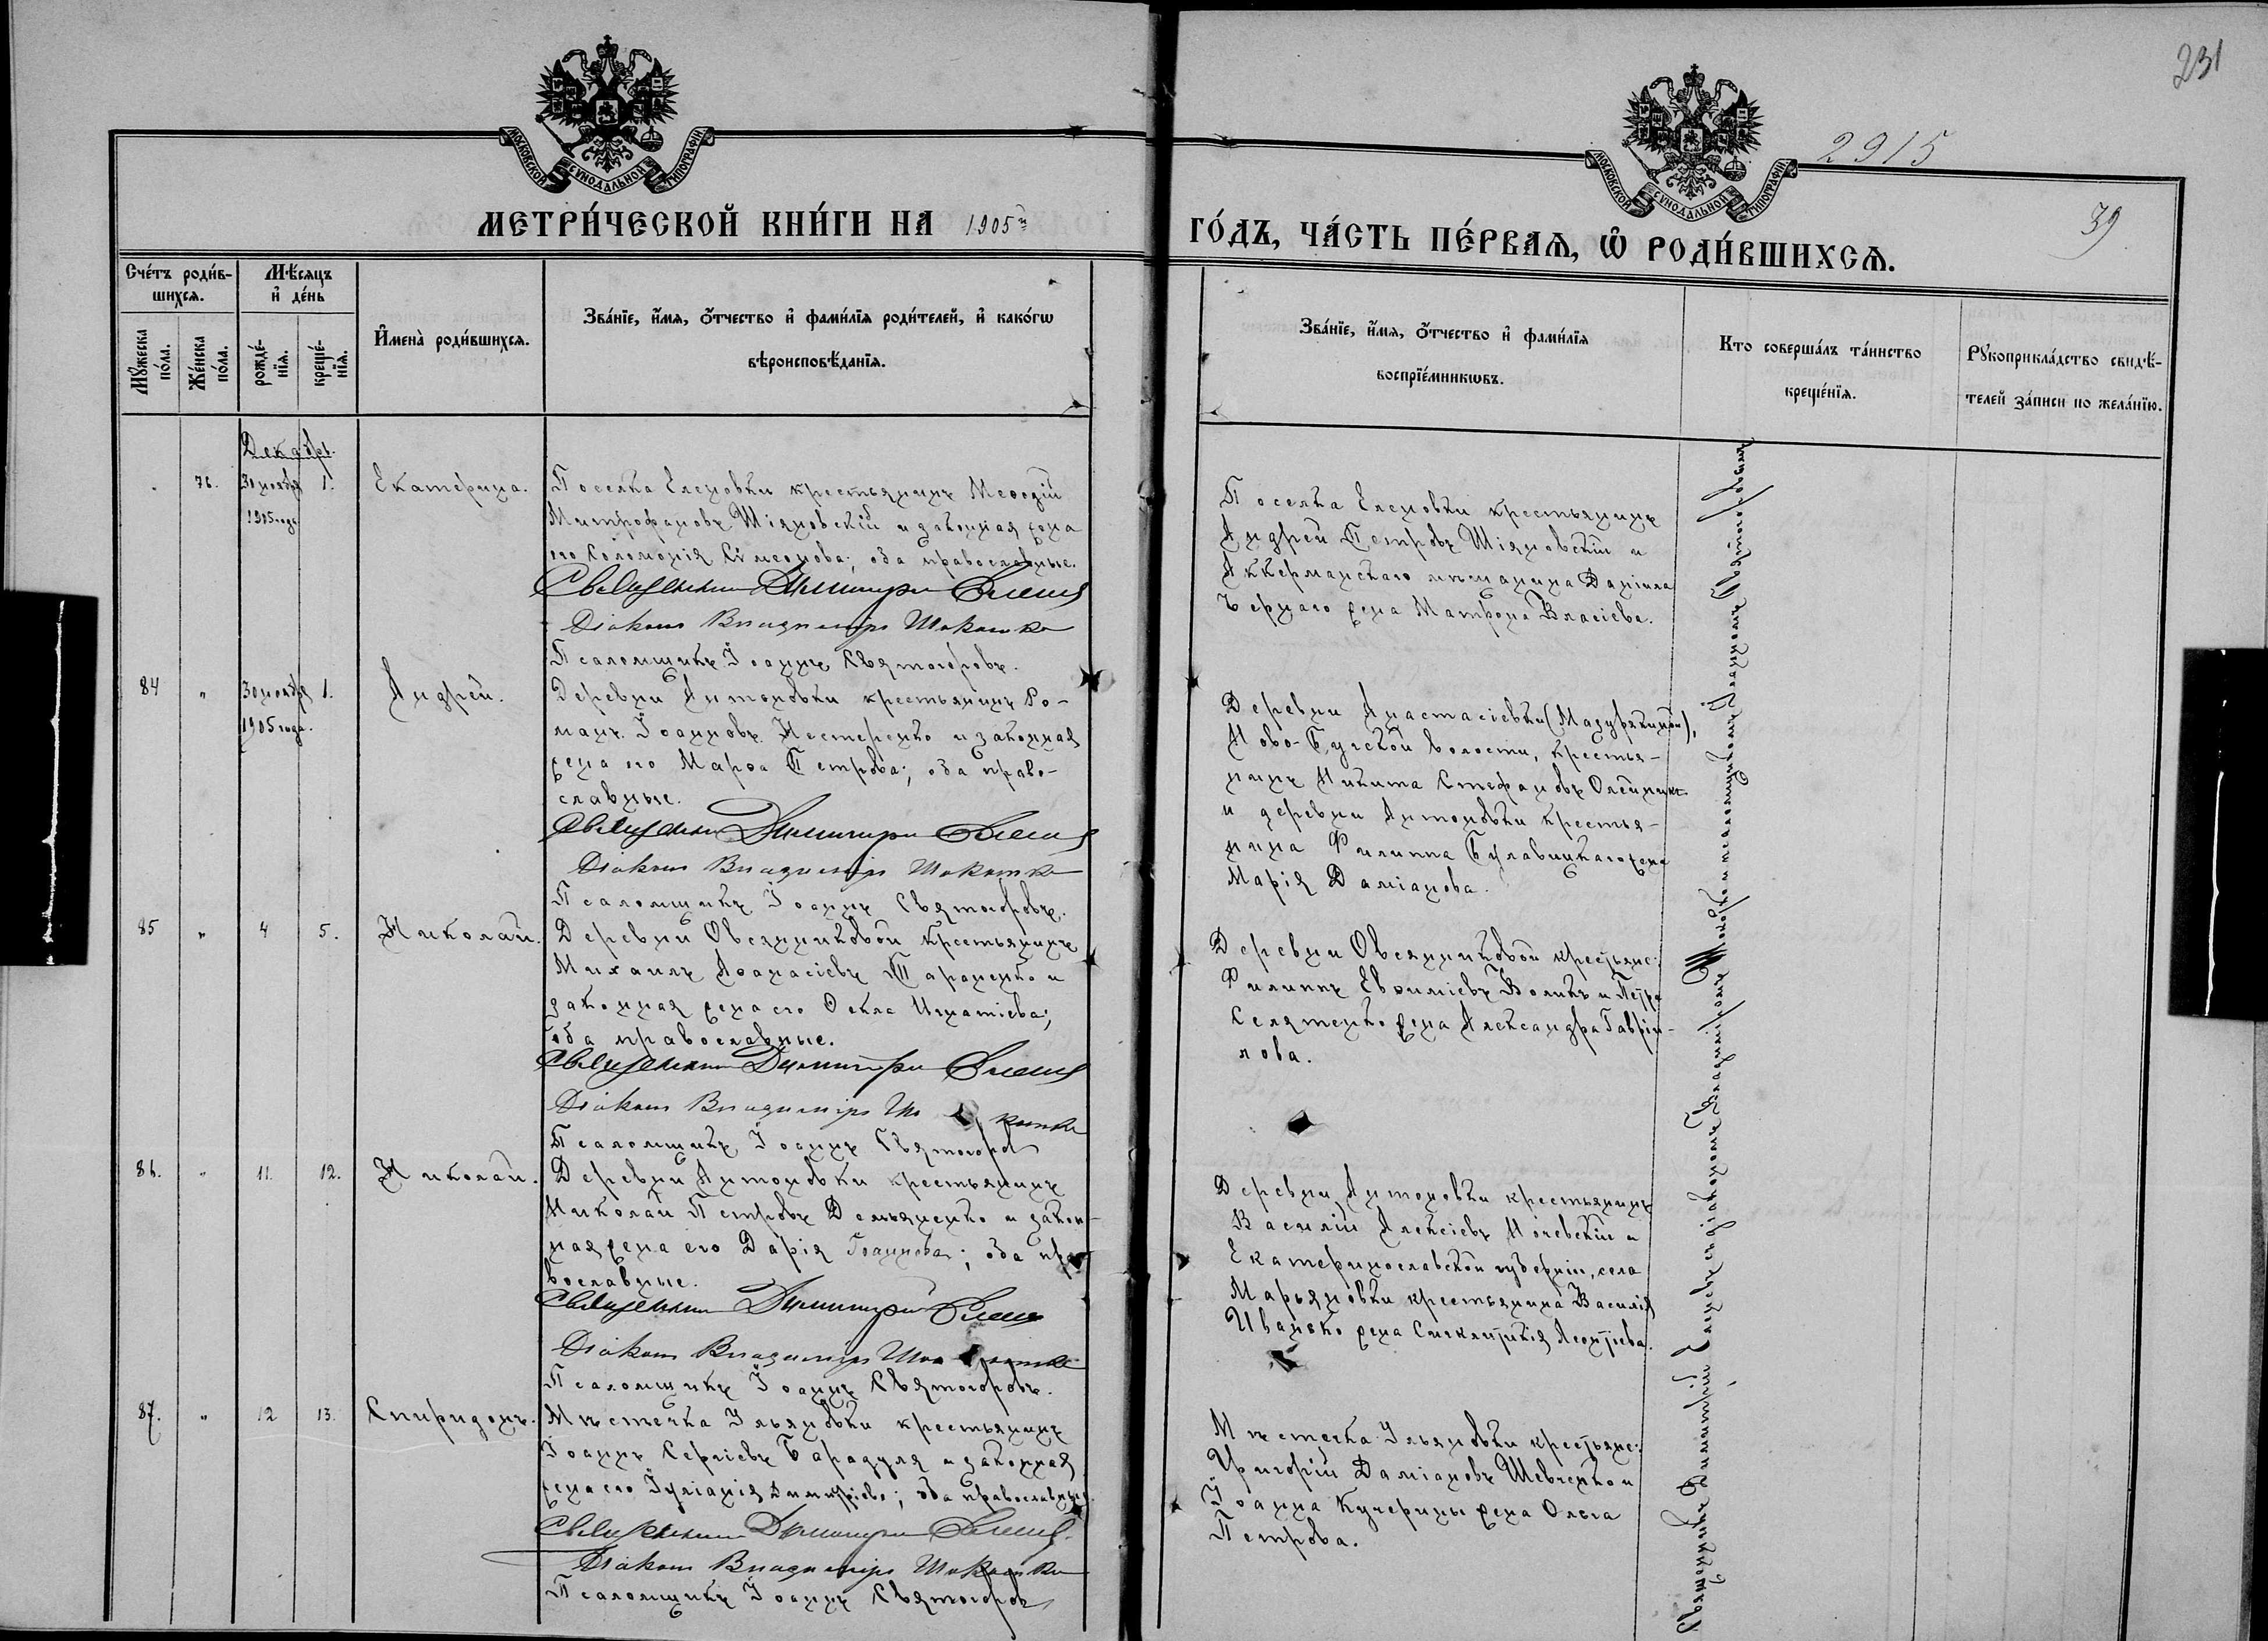 231
2915
39
МОСКОВСКОЙ СѴНОДАЛЬНОЙ ТИПОГРАФІИ
МОСКОВСКОЙ СѴНОДАЛЬНОЙ ТИПОГРАФІИ
МЕТРИ́ЧЕСКОЙ КНИ́ГИ НА 1905й
ГО́ДЪ, ЧА́СТЬ ПЕ́РВАѦ, Ѡ҆ РОДИ́ВШИХСѦ.
Сче́тъ роди́в-
шихсѧ.
Мѣ́сяцъ
и҆ де́нь
Мꙋ́жеска по́ла.
Же́нска по́ла.
рожде́-нїѧ.
креще́-нїѧ.
И҆мена̀ роди́вшихсѧ.
Зва́нїе, и҆́мѧ, ѻ҆́тчество и҆ фами́лїѧ роди́телей, и҆ како́гѡ
вѣроисповѣ́данїѧ.
Зва́нїе, и҆́мѧ, ѻ҆́тчество и҆ фами́лїѧ
воспрїе́мникѡвъ.
Кто соверша́лъ та́инство
креще́нїѧ.
Рꙋкоприкла́дство свидѣ́-
телей за́писи по жела́нїю.
Декабрь.
76. 30 ноября 1. Екатерина.
1905 года
Поселка Еленовки крестьянинъ Меѳодій
Митрофановъ Шіяновскій и законная жена
его Соломонія Сѵмеонова; оба православные.
Священникъ Димитрій
Діаконъ Владиміръ
Псаломщикъ Іоаннъ Святогоровъ.
Поселка Еленовки крестьянинъ
Андрей Петровъ Шіяновскій и
Аккерманскаго мѣщанина Даніила
Чернаго жена Матрона Власіева.
84 " 30 ноября 1. Андрей.
1905 года.
Деревни Антоновки крестьянинъ Ро-
манъ Іоанновъ Нестеренко и законная
жена его Марѳа Петрова; оба право-
славные.
Священникъ Димитрій
Діаконъ Владиміръ
Псаломщикъ Іоаннъ Святогоровъ.
Деревни Анастасіевки
Ново-Бугской волости, крестья-
нинъ Никита Стефановъ Олейникъ
и деревни Антоновки крестья-
нина Филиппа жена
Марія Даміанова.
85 " 4 5. Николай.
Деревни Овсянниковой крестьянинъ
Михаилъ Аѳанасіевъ Тараненко и
законная жена его Ѳекла Игнатіева;
оба православные.
Священникъ Димитрій
Діаконъ Владиміръ
Псаломщикъ Іоаннъ Святогоров
Деревни Овсянниковой крестьяне:
Филиппъ Евѳиміевъ Воликъ и Петра
жена Александра Гаврии-
лова.
86. " 11. 12. Николай.
Деревни Антоновки крестьянинъ
Николай Петровъ Демьяненко и закон-
ная жена его Дарія Іоаннова; оба пра-
вославные.
Священникъ Димитрій
Діаконъ Владиміръ
Псаломщикъ Іоаннъ Святогоровъ.
Деревни Антоновки крестьянинъ
Василій Алексіевъ и
Екатеринославской губерніи, села
Марьяновки крестьянина Василія
Иванько жена Сигклитикія Леонтіева.
87. " 12 13. Спиридонъ.
Мѣстечка Ульяновки крестьянинъ
Іоаннъ Сергіевъ и законная
жена его Іуліанія Димитріева; оба православные.
Священникъ Димитрій
Діаконъ Владиміръ
Псаломщикъ Іоаннъ Святогоров
Мѣстечка Ульяновки крестьяне:
Григорій Даміановъ Шевченко и
Іоанна жена Ольга
Петрова.
Священникъ Димитрій съ діакономъ Владиміромъ и псаломщикомъ Іоанномъ Святогоровымъ